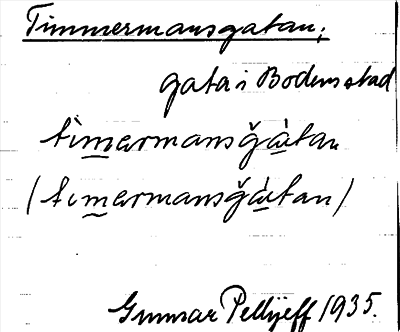 Timmermansgatan;
gata i Bodens stad
tìmermansğàtan
(tìmermansğàtan)
Gunnar Pellijeff 1935.